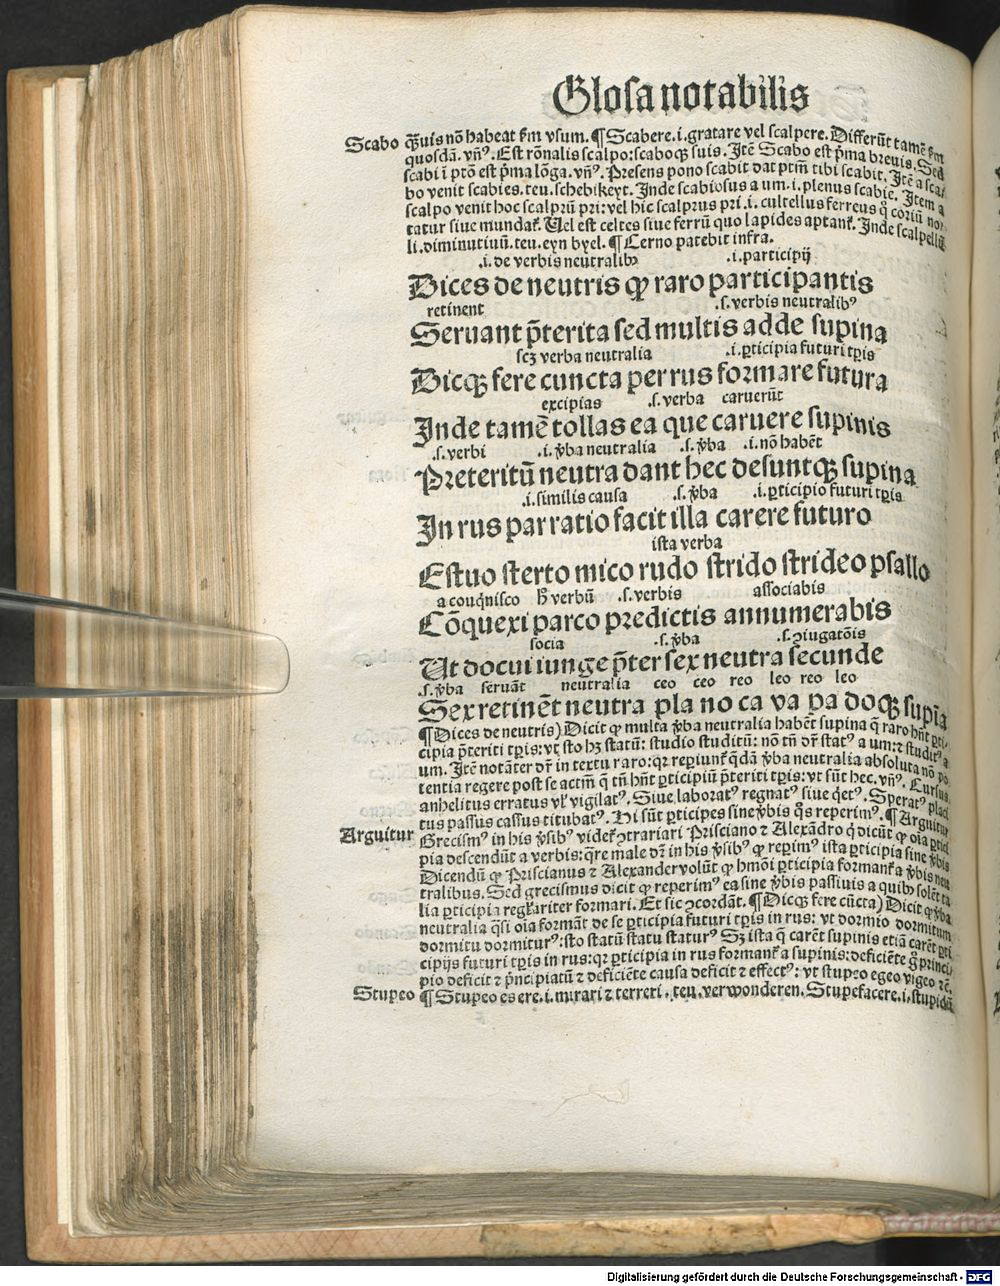 Glosa notabilis
Scabo
qͣuis nō habeat ẜm vsum. ¶ Scabere .i. gratare vel scalpere. Differūt tamē ẜm
quosdā. vn̄ꝰ. Est rōnalis scalpo: scaboqꝫ suis. Itē Scabo est p̄ma breuis. Sed
scabi ī ptō est p̄ma lōga. vn̄ꝰ. Presens pono scabit dat ptm̄ tibi scabit. Itē a sca/
bo venit scabies. teu. schebikeyt. Inde scabiosus a um .i. plenus scabie. Item a
scalpo venit hoc scalprū pri: vel hic scalprus pri .i. cultellus ferreus q̊ coriū no/
tatur siue mundat᷑. Uel est celtes siue ferrū quo lapides aptant᷑. Inde scalpellū
li. diminutiuū. teu. eyn byel. ¶ Cerno patebit infra.
.i. de verbis neutralibꝰ .i. participij
Dices de neutris qꝙ raro participantis
retinent .s. verbis neutralibꝰ
Seruant p̄terita sed multis adde supina
scꝫ verba neutralia .i. ꝑticipia futuri tꝑis
Dicqꝫ fere cuncta per rus formare futura
excipias .s. verba caruerūt
Inde tamē tollas ea que caruere supinis
.s. verbi .i. v̄ba neutralia .s. v̄ba .i. nō habēt
Preteritū neutra dant hec desuntqꝫ supina
.i. similis causa .s. v̄ba .i. ꝑticipio futuri tꝑis
In rus par ratio facit illa carere futuro
ista verba
Estuo sterto mico rudo strido strideo psallo
a couq̄nisco h̄ verbū .s. verbis associabis
Cōquexi parco predictis annumerabis
socia .s. v̄ba .s. ꝯiugatōis
Ut docui iunge p̄ter sex neutra secunde
.s. v̄ba seruāt neutralia ceo ceo reo leo reo leo
Sex retinēt neutra pla no ca va pa doqꝫ supīa
¶ Dices de neutris) Dicit ꝙ multa v̄ba neutralia habēt supina q̄ raro hn̄t ꝑti-
cipia p̄teriti tꝑis: vt sto hꝫ statū: studio studitū: nō tn̄ dr̄ statꝰ a um: ⁊ studitꝰ a
um. Itē notāter dr̄ in textu raro: qꝛ reꝑiunt᷑ q̄dā v̄ba neutralia absoluta nō po
tentia regere post se actm̄ q̄ tn̄ hn̄t ꝑticipiū p̄teriti tꝑis: vt sūt hec. vn̄ꝰ. Cursus
anhelitus erratus vl̓ vigilatꝰ. Siue laboratꝰ regnatꝰ siue q̇etꝰ. Speratꝰ placi
tus passus cassus titubatꝰ. Hi sūt ꝑticipes sine v̄bis q̊s reperimꝰ. ¶ Arguitur
Arguitur
Grecismꝰ in his v̄sibꝰ videt᷑ ꝯtrariari Prisciano ⁊ Alexādro q̇ dicūt ꝙ oīa ꝑtici
pia descendūt a verbis: q̄re male dr̄ in his v̄sibꝰ ꝙ reꝑimꝰ ista ꝑticipia sine v̄bis
Dicendū ꝙ Priscianus ⁊ Alexander volūt ꝙ hmōi ꝑticipia formant᷑ a v̄bis neu
tralibus. Sed grecismus dicit ꝙ reperimꝰ ea sine v̄bis passiuis a quibꝰ solēt ta
lia ꝑticipia regl̓ariter formari. Et sic ꝯcordāt. ¶ Dicqꝫ fere cūcta) Dicit ꝙ v̄ba
neutralia q̄si oīa formāt de se ꝑticipia futuri tꝑis in rus: vt dormio dormitum
dormitu dormiturꝰ: sto statū statu staturꝰ Sꝫ ista q̄ carēt supinis etiā carēt ꝑti
cipijs futuri tꝑis in rus: qꝛ ꝑticipia in rus formant᷑ a supinis: deficiēte g̊ princi/
pio deficit ⁊ p̄ncipiatū ⁊ deficiēte causa deficit ⁊ effectꝰ: vt stupeo egeo vigeo ⁊c̄.
Stupeo
¶ Stupeo es ere .i. mirari ⁊ terreri. teu. verwonderen. Stupefacere .i. stupidū
Digitalisierung gefördert durch die Deutsche Forschungsgemeinschaft - DFG